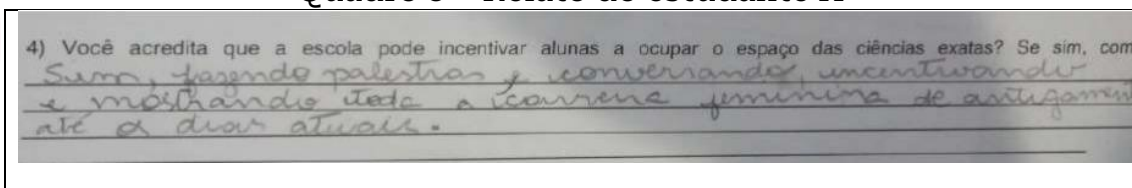 4) Você acredita que a escola pode incentivar alunas a ocupar o espaço das ciências exatas? Se sim, com
Sim, fazendo palestras e conversando, incentivando
e mostrando toda a carreira feminina de antigamen
até o dias atuais.